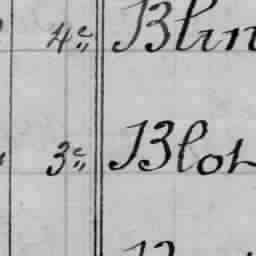 4e" Blin
3e" Blot